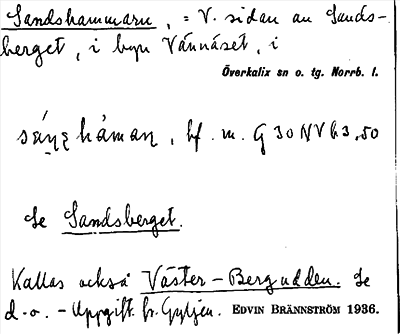 Sandshammarn, = V. sidan av Sands-
berget, i byn Vännäset, i
Överkalix sn o. tg. Norrb. l.
hf. m. G 30 NV h3,50
Se Sandsberget.
Kallas också Väster-Bergudden. Se
d.o. - Uppgift fr. Gyljen. EDVIN BRÄNNSTRÖM 1936.